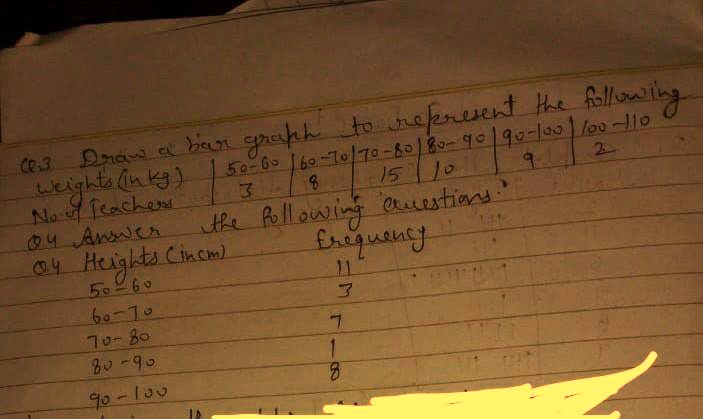 Q3 Draw a bar graph to represent the following
Weights (in kg) | 50-60 | 60-70 | 70-80 | 80-90 | 90-100 | 100-110
No. of Teachers | 3 | 8 | 15 | 10 | 9 | 2
Q4 Answer the following questions:
Q4 Heights (in cm) frequency
50-60 11
60-70 3
70-80 7
80-90 1
90-100 8